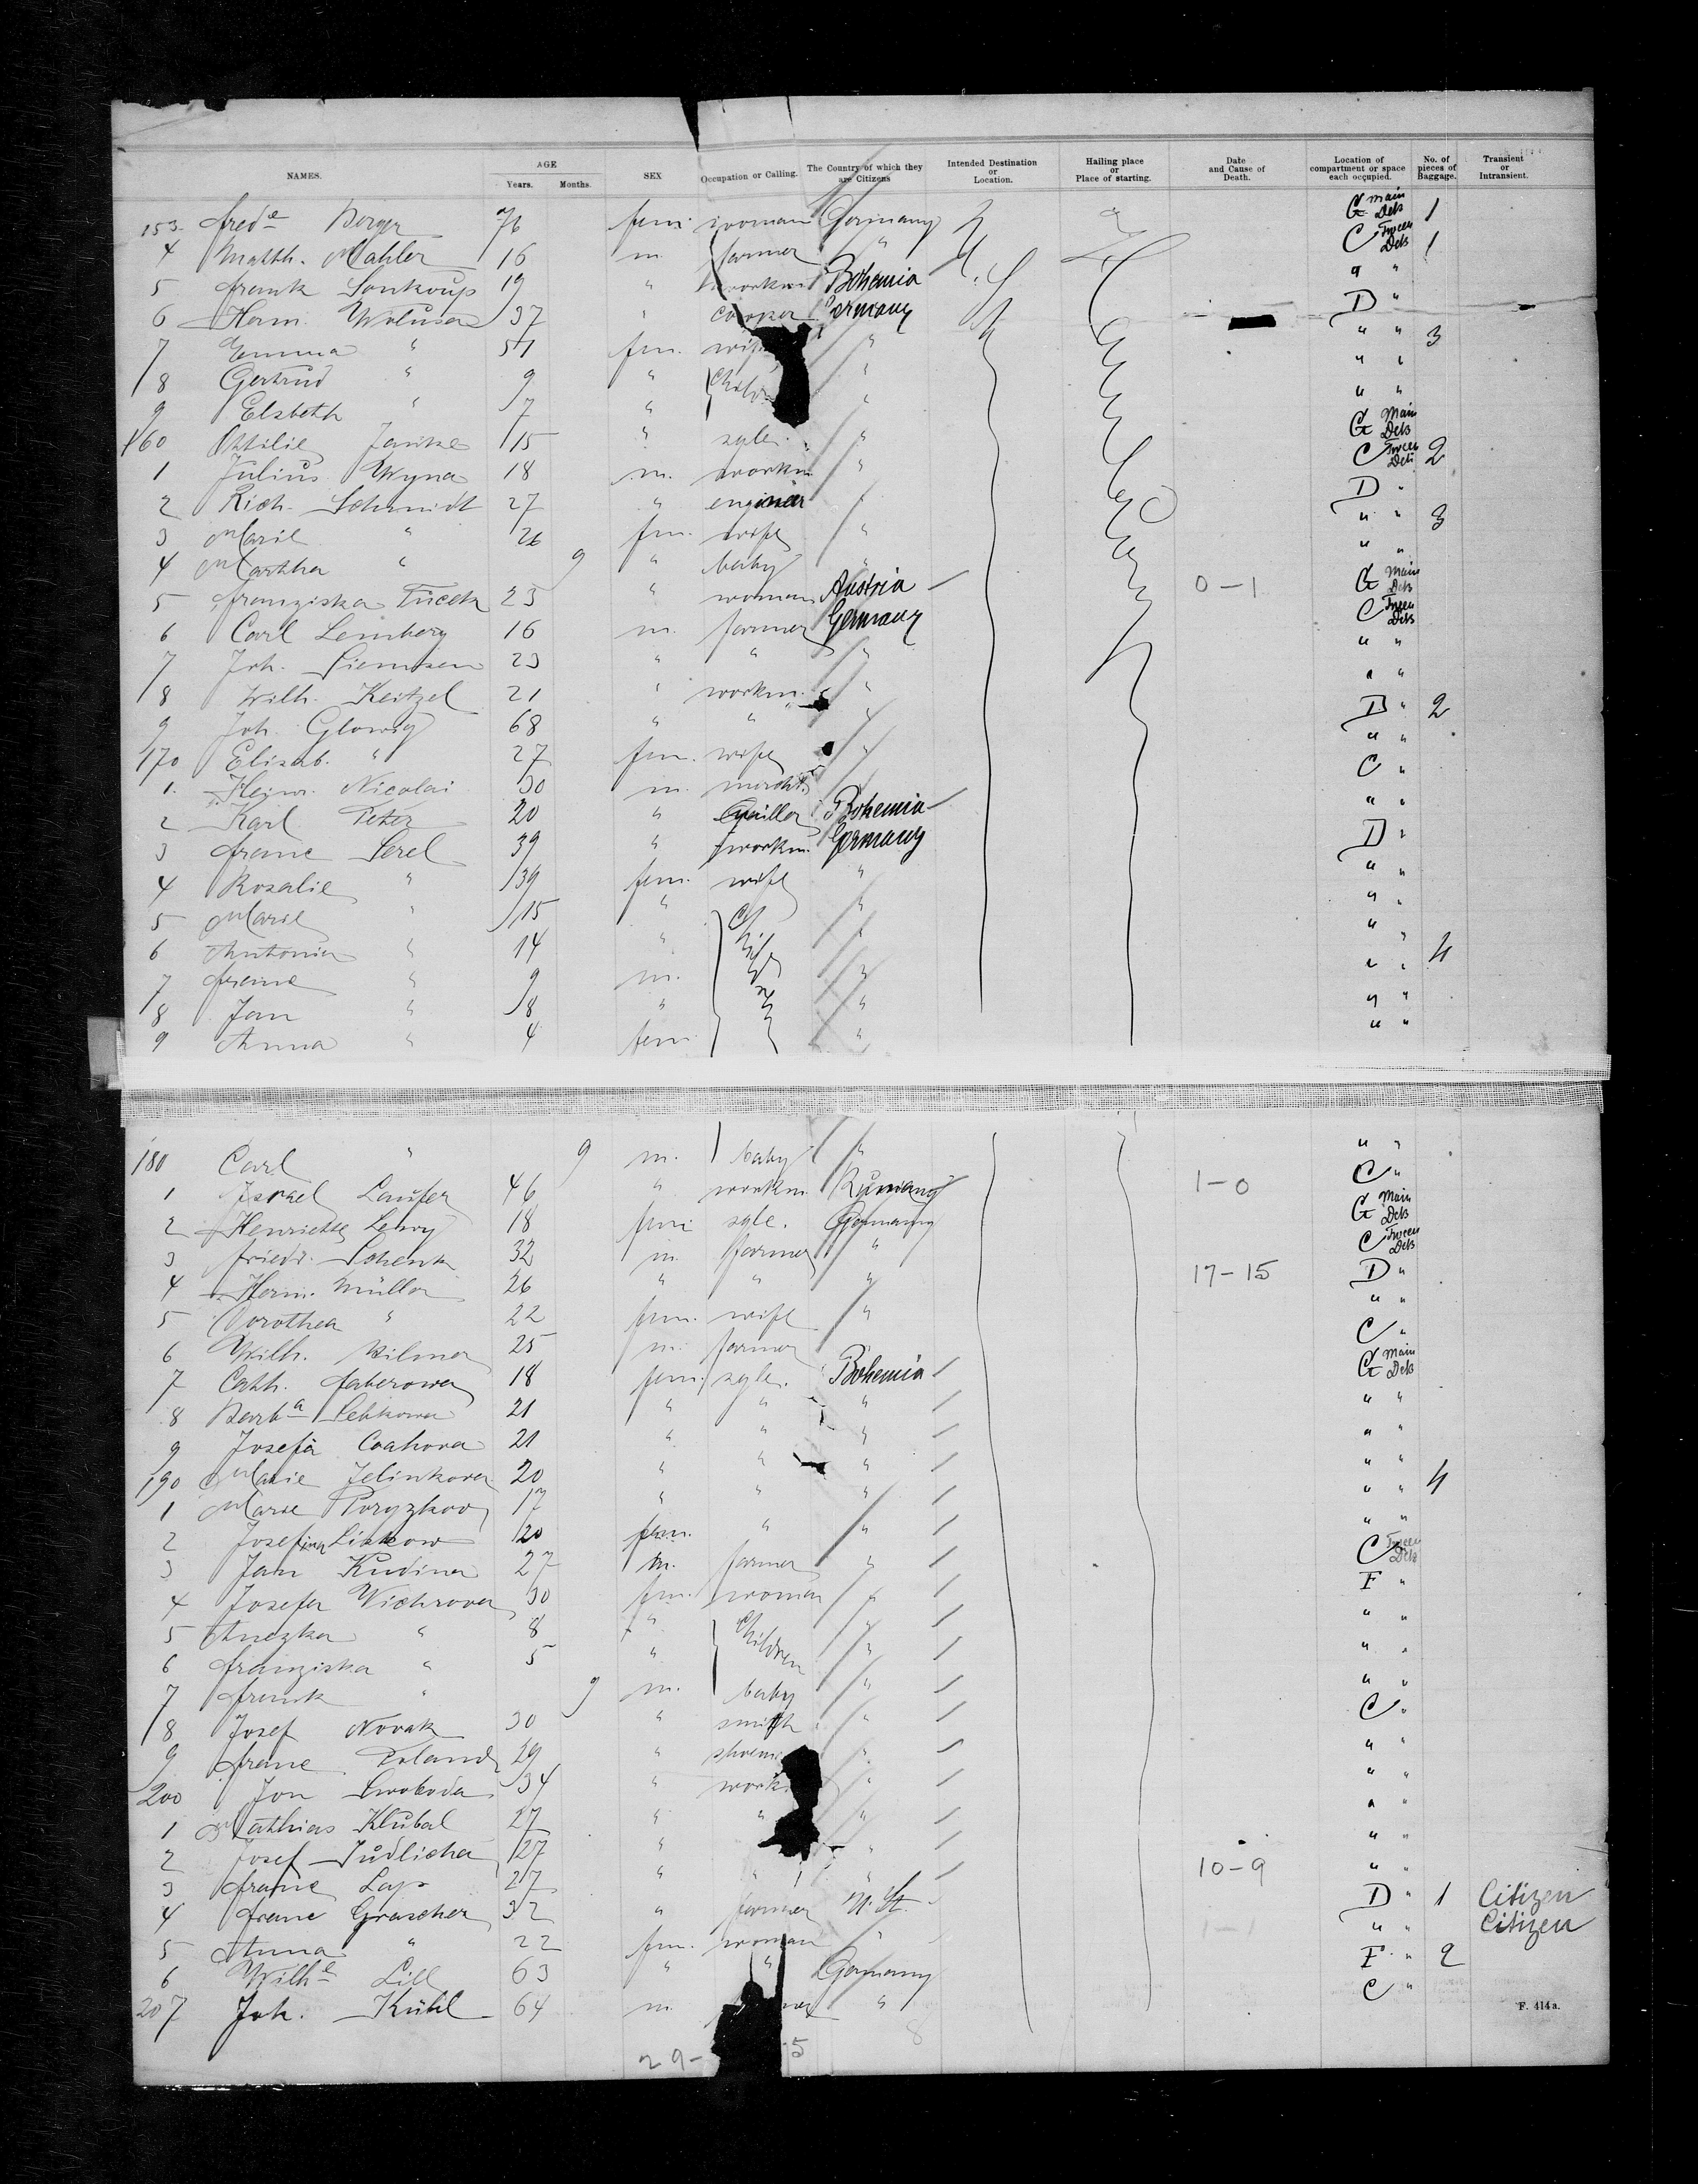 NAMES. AGE Years. Months. SEX Occupation or Calling. The Country of which they are Citizens Intended Destination or Location. Hailing place or Place of starting. Date and Cause of Death. Location of compartment or space each occupied. No. of pieces of Baggage. Transient or Intransient.
153 Fredᵉ Berger 76 fem. woman Germany G Main Deck 1
4 Matth. Mahler 16 m. farmer " C Tween Deck 1
5 Frank Soukoup 19 " workm. Bohemia " "
6 Herm. 37 " Germany D "
7 Emma " fem. wife " " " 3
8 Gertrud " 9 " " " "
9 Elsbeth " 7 " " " "
160 Ottilie Janke 15 " sgle. " G Main Deck
1 Julius Wyna 18 m. workm. " C Tween Deck 2
2 Rich. Schmidt 27 " engineer " D "
3 Marie " 26 fem. wife " " " 3
4 Martha " 9 " baby " " "
5 Franziska Tucek 23 " woman Austria 0-1 G Main Deck
6 Carl Lemberg 16 m. farmer Germany C Tween Deck
7 Joh. Siemsen 23 " " " " "
8 Wilh. Keitzel 21 " workm. " " "
9 Joh. Glowig 68 " " " D " 2
170 Elisab. " 27 fem. wife " " "
1 Heinr. Nicolai 30 m. " C "
2 Karl Peter 20 " Bohemia " "
3 Franc Serel 39 " workm. Germany D "
4 Rosalie " 39 fem. wife " " "
5 Marie " 15 " Children " " "
6 Antonia " 14 " " " "
7 Franc " 9 m. " " " 4
8 Jan " 8 " " " "
9 Anna " 4 fem. " " "
180 Carl " 9 m. baby " " "
1 Israel Laufer 46 " workm. 1-0 C "
2 Henriette Lewy 18 fem. sgle. Germany G Main Deck
3 Friedr. Schenk 32 m. farmer " C Tween Deck
4 Herm. Müller 26 " " " 17-15 D "
5 Dorothea " 22 fem. wife " " "
6 Wilh. Wilmer 25 m. farmer " C "
7 Cath. Faberowa 18 fem. sgle. Bohemia G Main Deck
8 Barbᵃ Lebkowa 21 " " " " "
9 Josefa 21 " " " " "
190 Marie Jelinkova 20 " " " " "
1 Marie 17 " " " " " 4
2 Josefina 20 fem. " " " "
3 Jan Kudina 27 m. farmer " C Tween Deck
4 Josefa Vichrova 30 fem. woman " F "
5 Anezka " 8 " Children " " "
6 Franziska " 5 " " " "
7 Frank " 9 m. baby " " "
8 Josef Novak 30 " smith " C "
9 Franc Poland 29 " " " "
200 Jon Swoboda 34 " work " " "
1 Mathias Klubal 27 " " " " "
2 Josef Sudlicha 27 " " " "
3 Franc Lays 27 " " " 10-9 " "
4 Franc Grascher 32 " farmer U. St. D " 1 Citizen
5 Anna " 22 fem. woman " 1-1 " " Citizen
6 Wilhᵉ Lill 63 " " Germany F " 2
207 Joh. Kühl 64 m. " C "
F. 414a.
29- 5 8